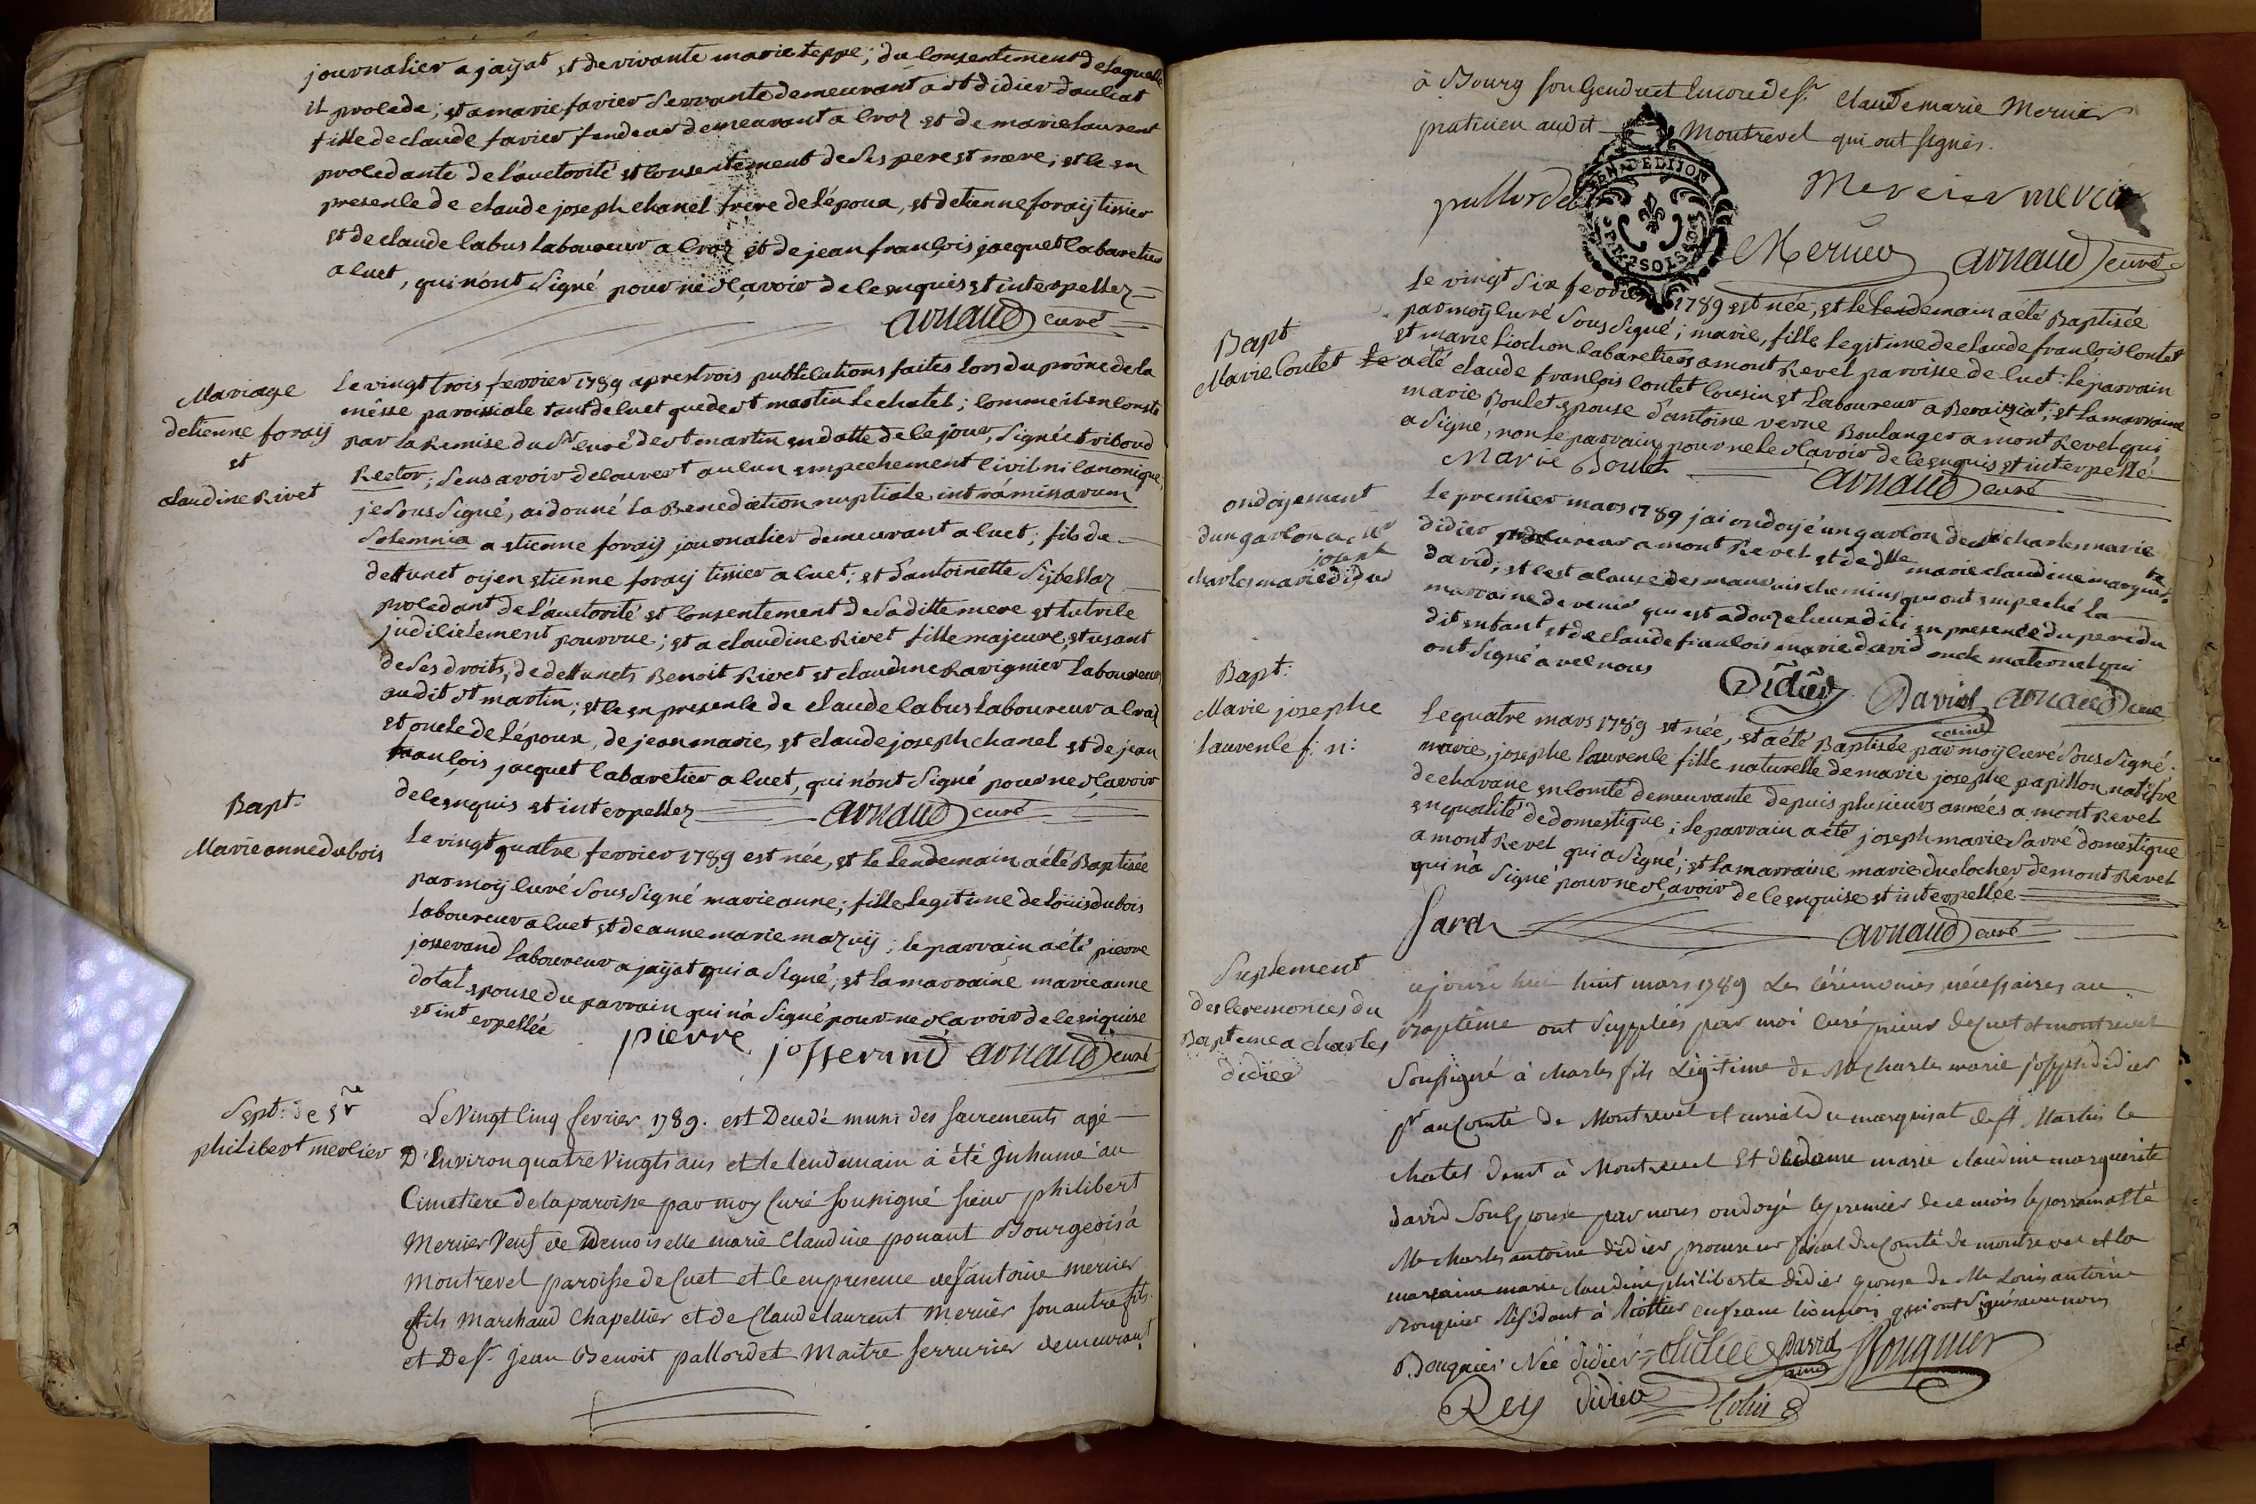 journalier a jaÿat et de vivante marie teppe; du consentement de laquelle
il procede; et a marie favier servante demeurant a st didier d'aussiat
fille de claude favier fendeur demeurant a cras et de marie laurent
procedante de l'auctorité et consentement de ses pere et mere; et ce en
presence de claude joseph chanel frere de l'époux, et d'etienne foraÿ tissier
et de claude cabus laboureur a cras et de jean françois jacquet cabaretier
a cuet, qui n'ont signé pour ne sçavoir de ce enquis et interpellez
arnaud curé
Mariage
d'etienne foraÿ
et
claudine Rivet
Le vingt trois fevrier 1789 apres trois publications faites lors du prône de la
messe paroissiale tant de cuet que de st martin le chatel; comme il en conste
par la Remise du Sr curé de st martin en datte de ce jour, signée triboud
Rector; sens avoir decouvert aucun empechement civil ni canonique,
je soussigné, ai donné la Benediction nuptiale intrà missarum
Solemnia a etienne foraÿ journalier demeurant a cuet; fils de
deffunct oyen etienne foraÿ tissier a cuet; et d'antoinette Sibellas
procedant de l'auctorité et consentement de sa ditte mere et tutrice
judiciclement pourvue; et a claudine Rivet fille majeure, et usant
de ses droits, de deffuncts Benoit Rivet et claudine Ravignier laboureurs
audit st martin; et ce en presence de claude cabus laboureur a cras
et oncle de l'époux, de jean marie, et claude joseph chanel et de jean
françois jacquet cabaretier a cuet, qui n'ont signé pour ne sçavoir
de ce enquis et interpellez arnaud curé
Bapt:
Marie anne dubois
Le vingt quatre fevrier 1789 est née, et le lendemain a été Baptisée
par moÿ curé soussigné marie anne; fille legitime de Loüis dubois
laboureur a cuet et de anne marie mazuÿ; le parrain a été pierre
josserand laboureur a jaÿat qui a signé; et la marraine marie anne
dotal epouse du parrain qui n'a signé pour ne sçavoir de ce enquise
et interpellée
pierre josserand arnaud curé
Sept: de sr
philibert mercier
Le Vingt Cinq fevrier 1789. est Decedé muni des sacrements agé
D'Environ quatre Vingts ans et le lendemain à été Inhumé au
Cimetiere de la paroisse par moy Curé soussigné sieur philibert
Mercier Veuf de Demoiselle marie Claudine ponant Bourgeois à
Montrevel paroisse de Cuet et ce en presence de sr antoine mercier
fils Marchand Chapellier et de Claude laurent Mercier son autre fils
et De sr jean Benoit pallordet Maitre serrurier demeurant
à Bourg son Gendre et Encore de sr Claude marie Mercier
praticien audit Montrevel qui ont signés.
GEN. DE DIJON
pallordet Mercier mercier
Mercier arnaud curé
Bapt
Marie Contet
Le vingt six fevrier 1789 est née, et le lendemain a été Baptisée
par moÿ curé sous signé; marie, fille legitime de claude françois contet
et marie Liochon cabaretiers a mont Revel paroisse de cuet: le parrain
a été claude françois contet cousin et laboureur a Bereiziat; et la marraine
marie Boulet epouse d'antoine verne Boulanger a mont Revel qui
a signé, non le parrain pour ne le sçavoir de ce enquis et interpellé
Marie Boulet arnaud curé
ondoyement
d'un garçon a Mr
joseph
charles marie didier
Le premier mars 1789 j'ai ondoyé un garçon de Mr charles marie
didier procureur a mont Revel et de dlle marie claudine marguerite
david; et c'est a cause des mauvais chemins qui ont empeché la
marraine de venir qui est a douze lieues d'ici en presence du pere du
dit enfant et de claude françois marie david oncle maternel qui
ont signé avec nous
Didier David ainé arnaud curé
Bapt:
Marie josephe
laurence f. n:
Le quatre mars 1789 est née, et a été Baptisée par moÿ curé sous signé.
marie, josephe laurence fille naturelle de marie josephe papillon natifve
de chavane en comté demeurante depuis plusieurs années a mont Revel
en qualité de domestique; le parrain a été joseph marie Savre domestique
a mont Revel qui a signé; et la marraine marie duclocher de mont Revel
qui n'a signé pour ne sçavoir de ce enquise et interpellée
arnaud curé
Suplement
des ceremonies du
Bapteme a charles
didier
aujourd'hui huit mars 1789 Les cérémonies nécessaires au
Baptême ont supplées par moi curé prieur de Cuet et montrevel
Soussigné à charles fils Légitime de Me Charles marie joseph didier
pr au Comté de Montrevel et curial du marquisat de st Martin le
chatel demt à Montrevel Et de dame marie claudine marguerite
david son Epouse par nous ondoyé le premier de ce mois le parrain a été
Me charles antoine didier procureur fiscal du Comté de montrevel et la
marraine marie claudine philiberte didier epouse de Me Louis antoine
Rouquier Résidant à Riottier en franc lionnois qui ont signés avec nous
Rouquier Née didier didier David ainé Rouquier
Rey didier Colin